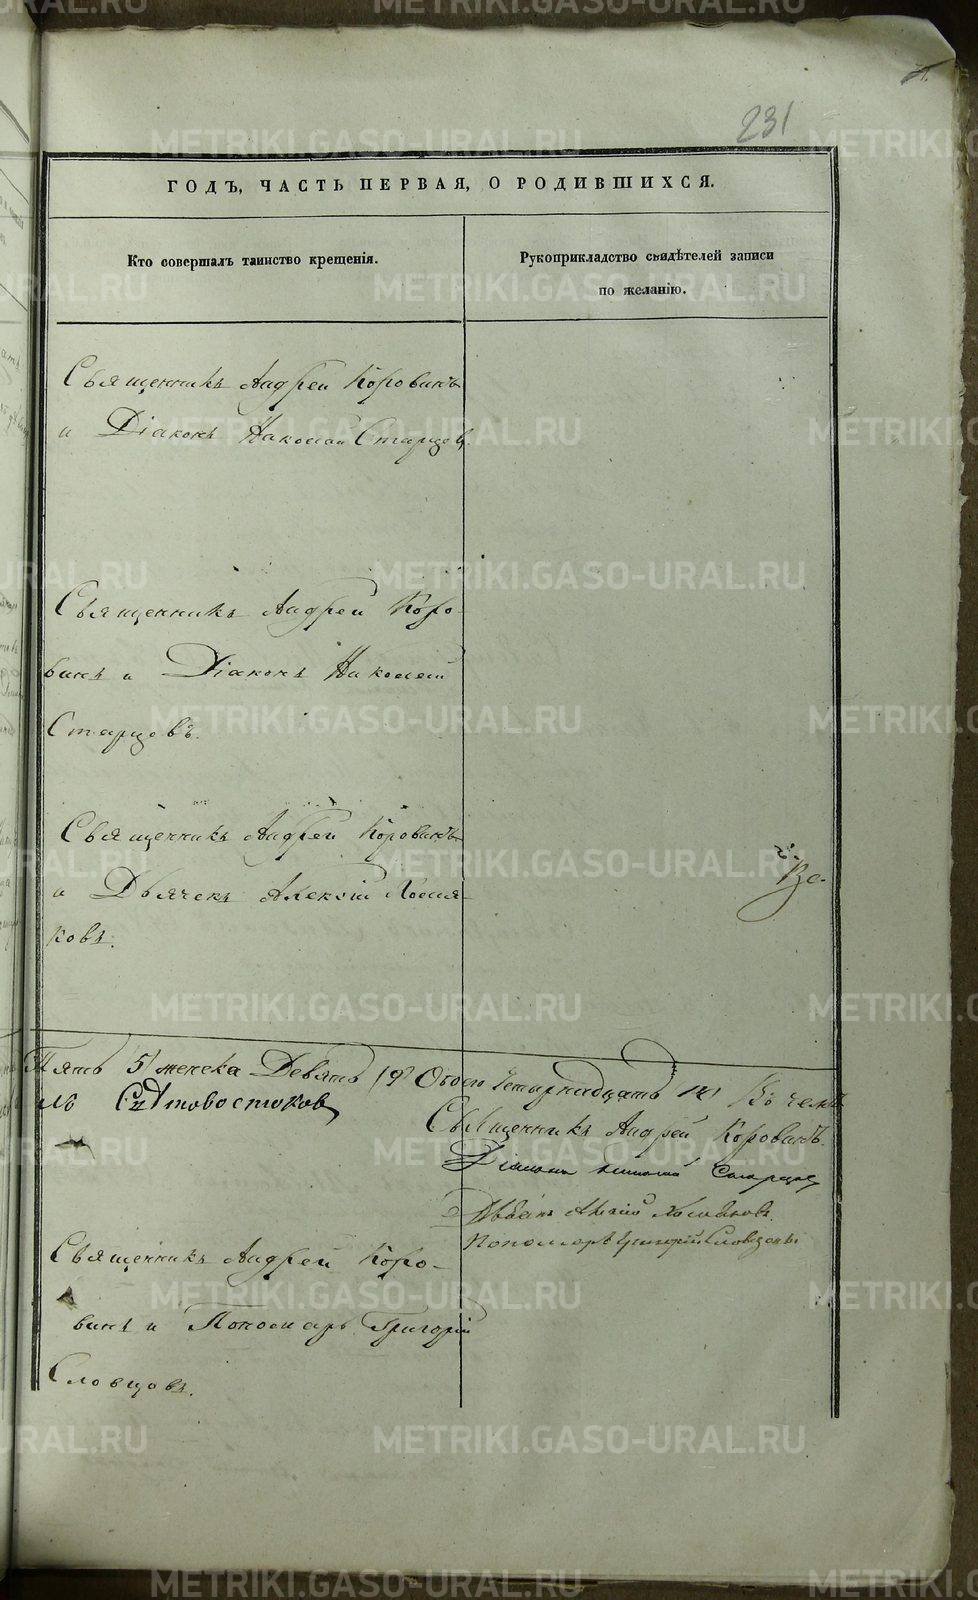 231
ГОДЪ, ЧАСТЬ ПЕРВАЯ, О РОДИВШИХСЯ.
Кто совершалъ таинство крещенія.
Рукоприкладство свидѣтелей записи
по желанію.
Священникъ Андрей Коровинъ
и Діаконъ Николай Старцев
Священникъ Андрей Коро-
винъ и Діаконъ Николай
Старцовъ.
Священникъ Андрей Коровинъ
и Дьячекъ Алексій Хомя-
ковъ.
Пять 5/ женска Девять /9/ Обоего Четырнадцать 14/ Въ чемъ
Священникъ Андрей Коровинъ.
Діаконъ Николай Старцов
Дьячекъ Алексій Хомяковъ
Пономарь Григорій Словцовъ
Священникъ Андрей Коро-
винъ и Пономарь Григорій
Словцовъ.
METRIKI.GASO-URAL.RU